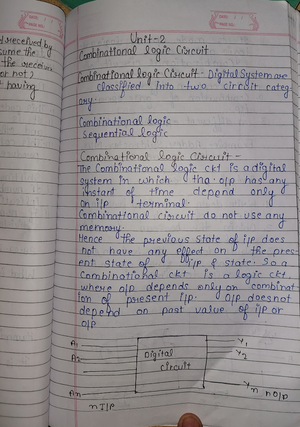 d received by
sume the
the receiver
or not)
having
Unit-2
Combinational logic Circuit
Combinational logic Circuit - Digital System are
classified into two circuit categ
ory
Combinational logic
Sequential logic
Combinational logic Circuit -
The Combinational logic ckt is a digital
system in which the o/p has any
instant of time depend only
on i/p terminal.
Combinational circuit do not use any
memory.
Hence the previous state of i/p does
not have any effect on the pres
ent state of i/p & state. So a
Combinational ckt is a logic ckt.
where o/p depends only on combinat
ion of present i/p. o/p does not
depend on past value of i/p or
o/p
A1
A2
An
n I/P
Digital
circuit
Y1
Y2
Yn n O/p